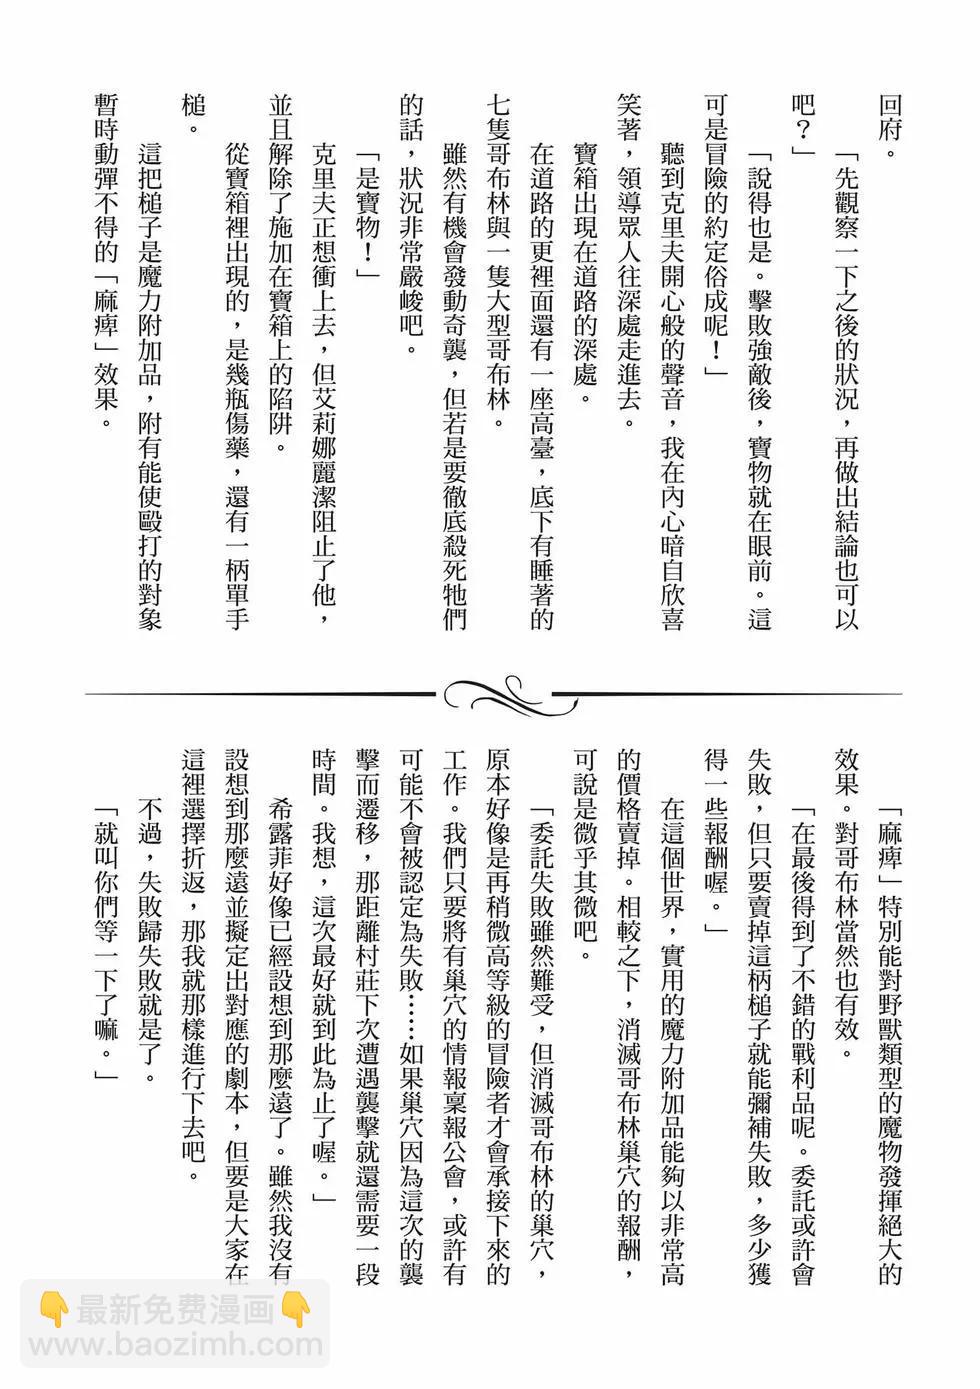 回府。
「先觀察一下之後的狀況，再做出結論也可以
吧？」
「說得也是。擊敗強敵後，寶物就在眼前。這
可是冒險的約定俗成呢！」
聽到克里夫開心般的聲音，我在內心暗自欣喜
笑著，領導眾人往深處走進去。
寶箱出現在道路的深處。
在道路的更裡面還有一座高臺，底下有睡著的
七隻哥布林與一隻大型哥布林。
雖然有機會發動奇襲，但若是要徹底殺死牠們
的話，狀況非常嚴峻吧。
「是寶物！」
克里夫正想衝上去，但艾莉娜麗潔阻止了他，
並且解除了施加在寶箱上的陷阱。
從寶箱裡出現的，是幾瓶傷藥，還有一柄單手
槌。
這把槌子是魔力附加品，附有能使毆打的對象
暫時動彈不得的「麻痺」效果。
「麻痺」特別能對野獸類型的魔物發揮絕大的
效果。對哥布林當然也有效。
「在最後得到了不錯的戰利品呢。委託或許會
失敗，但只要賣掉這柄槌子就能彌補失敗，多少獲
得一些報酬喔。」
在這個世界，實用的魔力附加品能夠以非常高
的價格賣掉。相較之下，消滅哥布林巢穴的報酬，
可說是微乎其微吧。
「委託失敗雖然難受，但消滅哥布林的巢穴，
原本好像是再稍微高等級的冒險者才會承接下來的
工作。我們只要將有巢穴的情報稟報公會，或許有
可能不會被認定為失敗……如果巢穴因為這次的襲
擊而遷移，那距離村莊下次遭遇襲擊就還需要一段
時間。我想，這次最好就到此為止了喔。」
希露菲好像已經設想到那麼遠了。雖然我沒有
設想到那麼遠並擬定出對應的劇本，但要是大家在
這裡選擇折返，那我就那樣進行下去吧。
不過，失敗歸失敗就是了。
「就叫你們等一下了嘛。」
👇最新免费漫画👇
www.baozimh.com